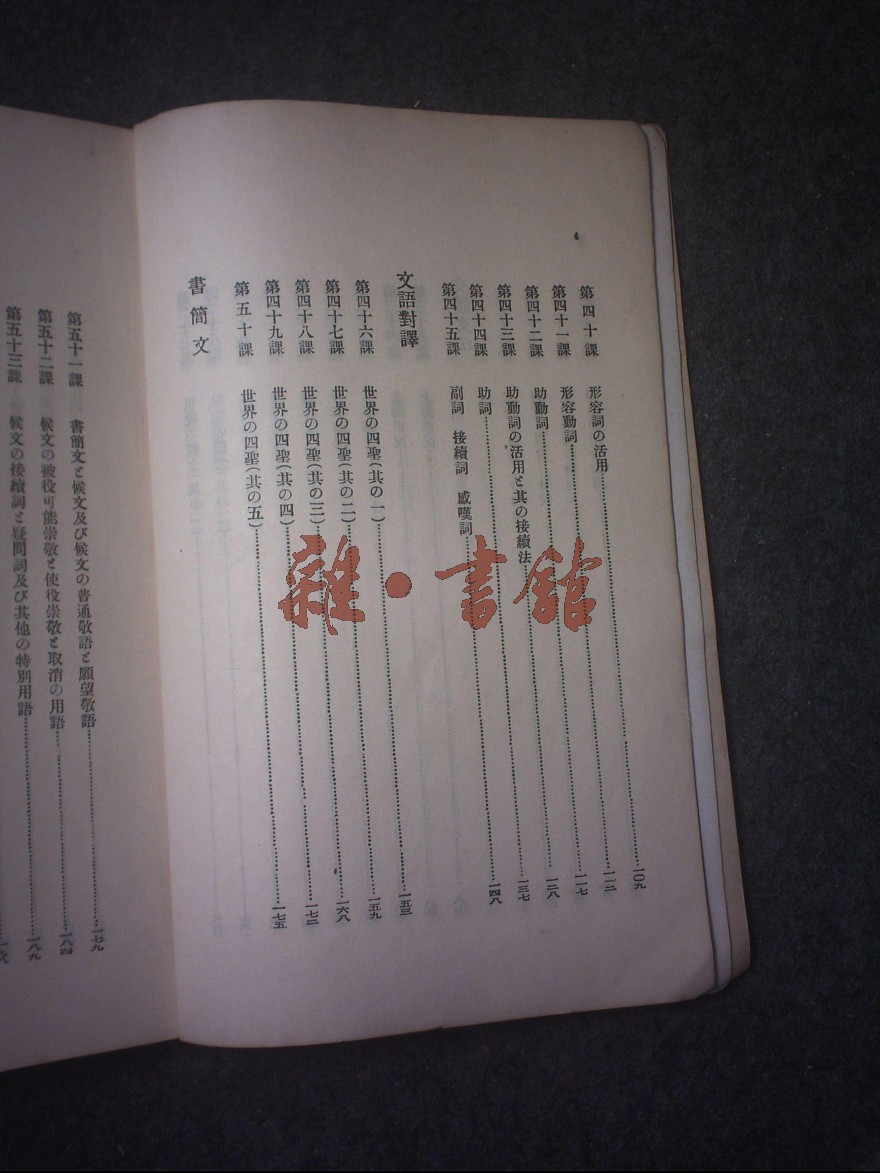 4
第四十課 形容詞の活用……一〇九
第四十一課 形容動詞……一一二
第四十二課 助動詞……一一七
第四十三課 助動詞の活用と其の接續法……一二八
第四十四課 助詞……一三七
第四十五課 副詞 接續詞 感嘆詞……一四八
文語對譯
第四十六課 世界の四聖(其の一)……一五三
第四十七課 世界の四聖(其の二)……一五九
第四十八課 世界の四聖(其の三)……一六八
第四十九課 世界の四聖(其の四)……一七二
第五十課 世界の四聖(其の五)……一七五
書簡文
第五十一課 書簡文と候文及び候文の普通敬語と願望敬語……一七九
第五十二課 候文の被役可能崇敬と使役崇敬と取消の用語……一八四
第五十三課 候文の接續詞と疑問詞及び其他の特別用語……一八九
雜·書館